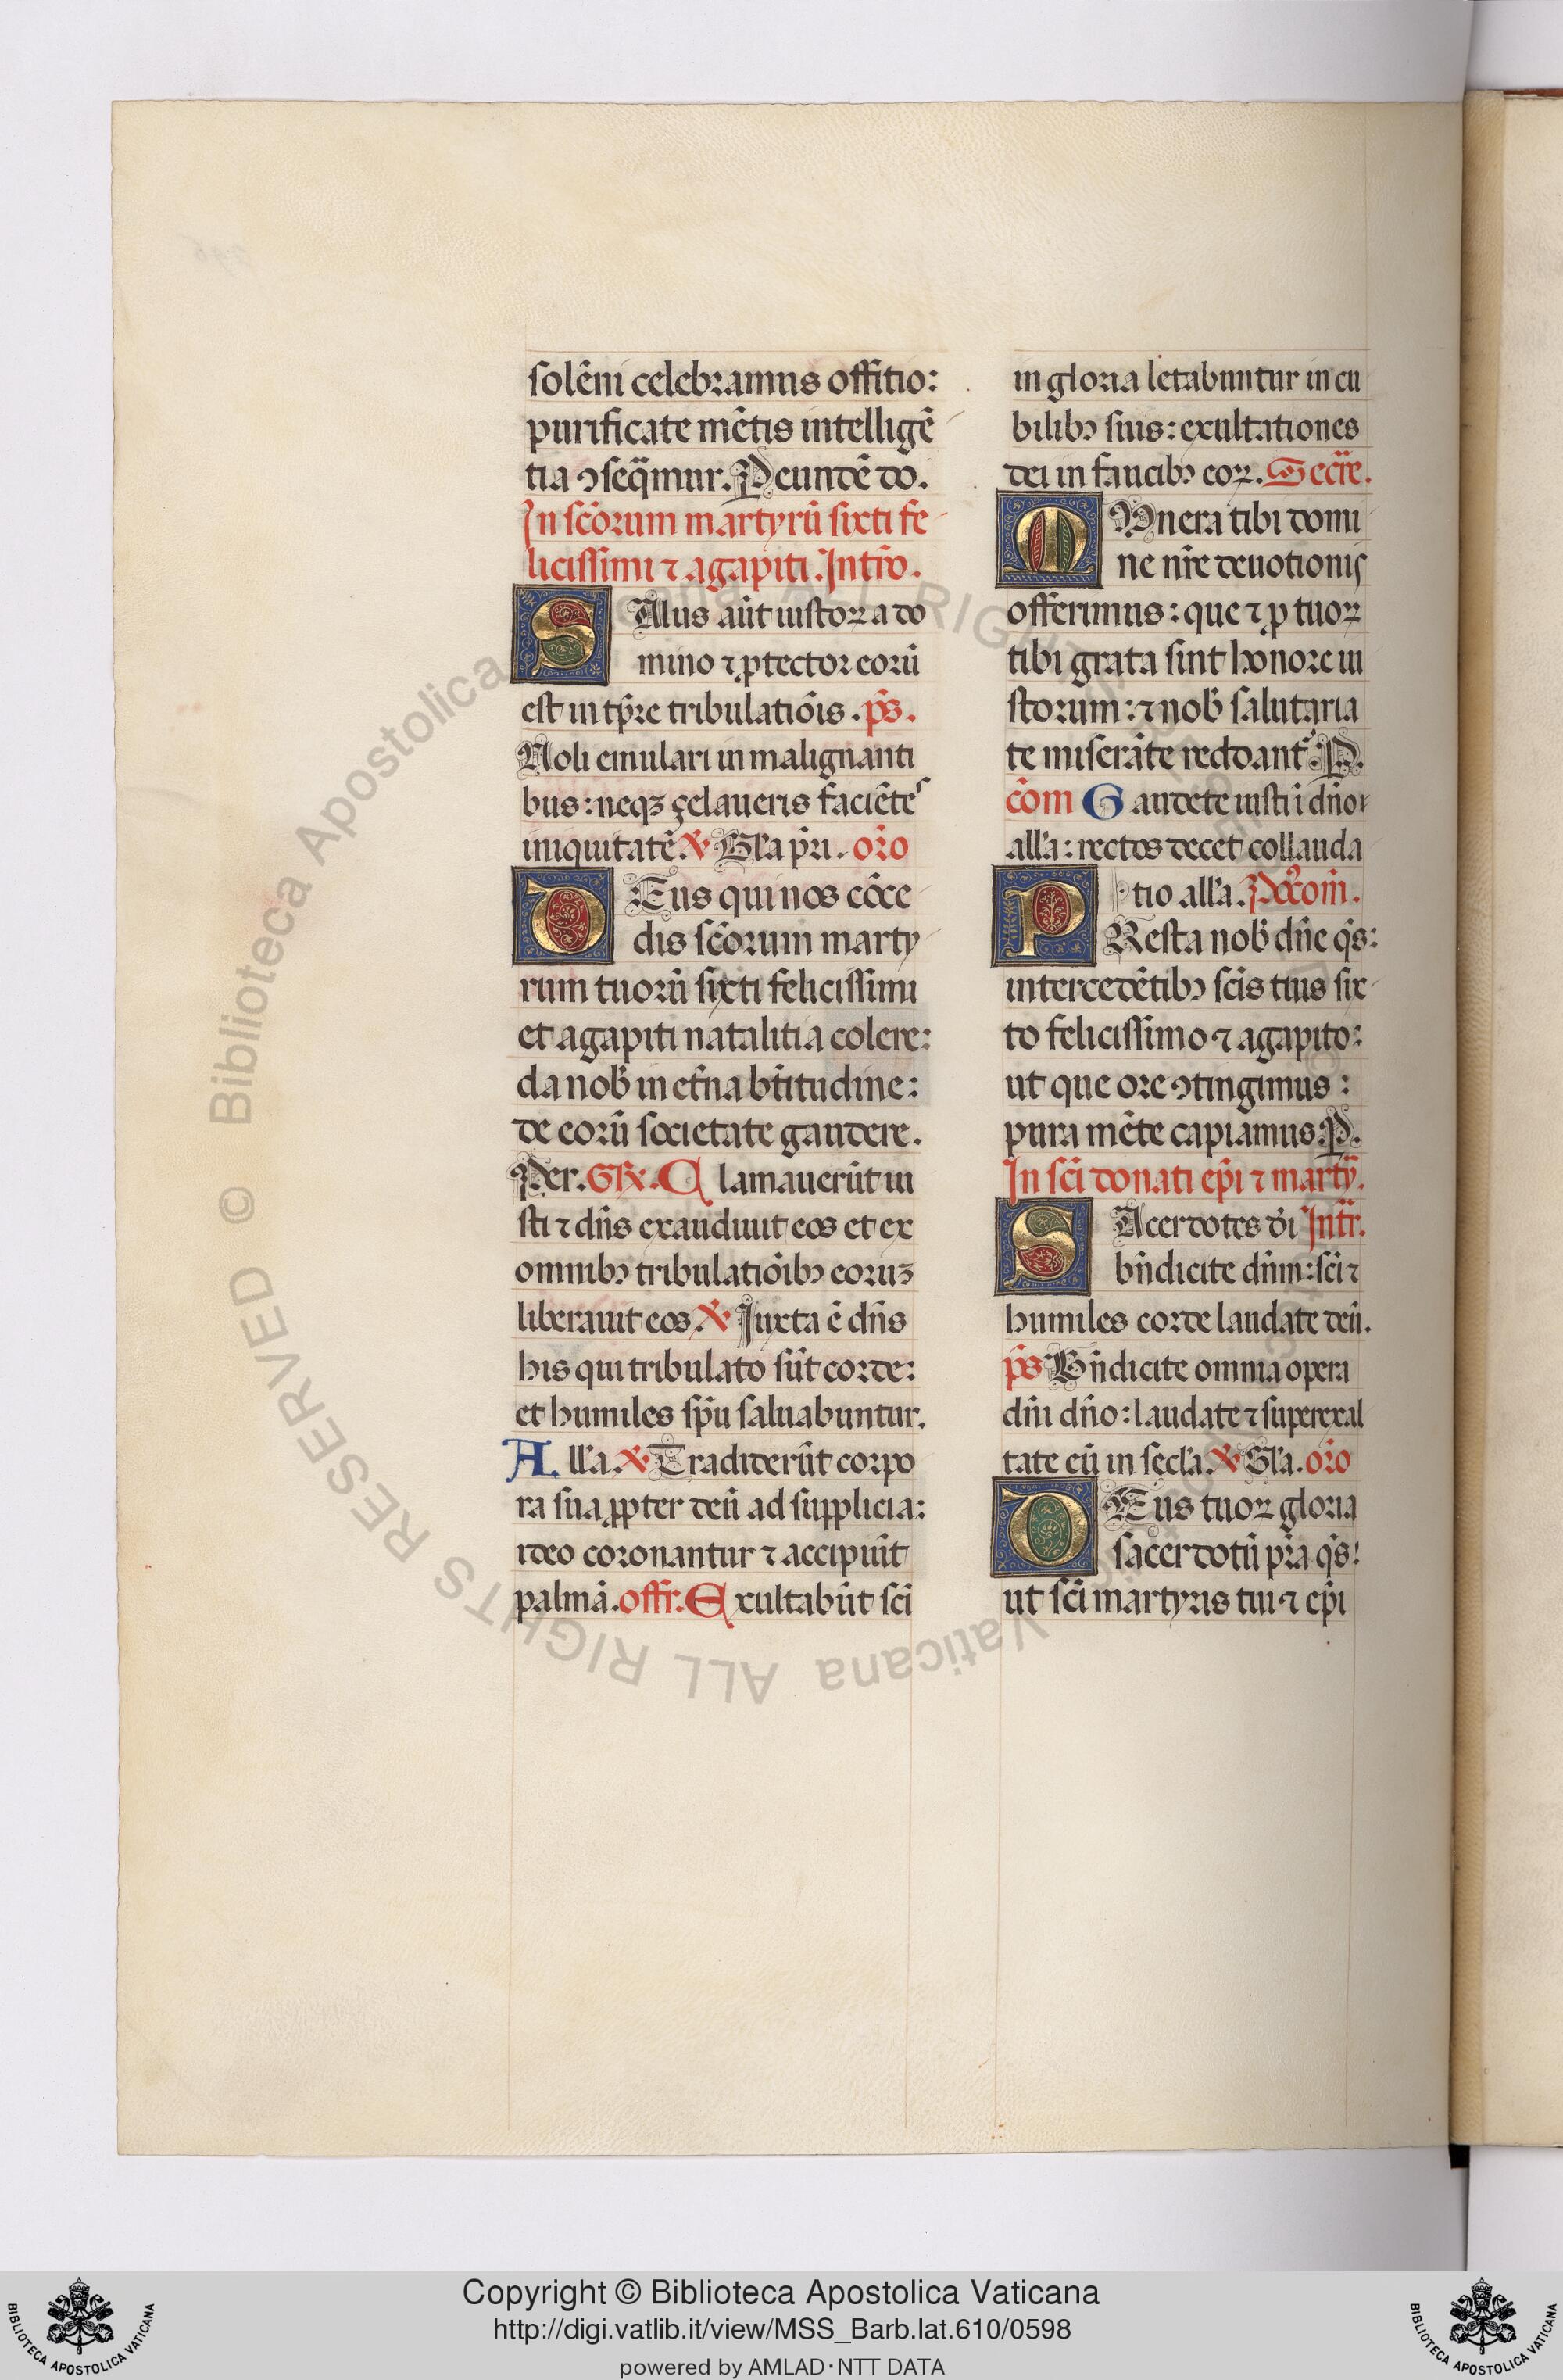 solēni celebramus offitio:
purificate mētis intelligē
tia ↄseq̄mur. P eundē do.
In sc̄orum martyrū sixti fe
licissimi ⁊ agapiti. Intro.
SAlus aūt iustoꝝ a do
mino ⁊ ꝓtector eorū
est in tp̄re tribulatiōis. ps̄.
Noli emulari in malignanti
bus: neqꝫ çelaueris faciētes
iniquitatē. ℣ Gl̄a pr̄i. or̄o
DEus qui nos cōce
dis sc̄orum marty
rum tuorū sixti felicissimi
et agapiti natalitia colere:
da nob̄ in et̄na bt̄itudine:
de eorū societate gaudere.
Per. Gr̄. Clamauerūt iu
sti ⁊ dn̄s exaudiuit eos et ex
omnibꝰ tribulatiōibꝰ eoruꝫ
liberauit eos. ℣ Iuxta ē dn̄s
his qui tribulato sūt corde:
et humiles spū saluabuntur.
All'a. ℣ Tradiderūt corpo
ra sua ꝓpter deū ad supplicia:
ideo coronantur ⁊ accipiūt
palmā. offr̄. Exultabūt sc̄i
in gloria letabuntur in cu
bilibꝰ suis: exultationes
dei in faucibꝰ eoꝝ. Secr̄e.
MUnera tibi domi
ne nr̄e deuotionis
offerimus: que ⁊ ꝓ tuoꝝ
tibi grata sint honore iu
storum: ⁊ nob̄ salutaria
te miserāte reddant. P.
cōm Gaudete iusti ī dn̄o
all'a: rectos decet collauda
tio all'a. Postcom̄.
PResta nob̄ dn̄e qs̄:
intercedētibꝰ sc̄is tuis six
to felicissimo ⁊ agapito:
ut que ore ↄtingimus:
pura mēte capiamus. P.
In sc̄i donati ep̄i ⁊ marty̅.
SAcerdotes dī Intr̄.
bn̄dicite dn̄m: sc̄i ⁊
humiles corde laudate deū.
ps̄ Bn̄dicite omnia opera
dn̄i dn̄o: laudate ⁊ superexal
tate eū in secl'a. ℣ Gl'a. or̄o
DEus tuoꝝ gloria
sacerdotū pr̄a qs̄:
ut sc̄i martyris tui ⁊ ep̄i
© Biblioteca Apostolica Vaticana ALL RIGHTS RESERVED
Copyright © Biblioteca Apostolica Vaticana
http://digi.vatlib.it/view/MSS_Barb.lat.610/0598
powered by AMLAD·NTT DATA
BIBLIOTECA APOSTOLICA VATICANA
BIBLIOTECA APOSTOLICA VATICANA